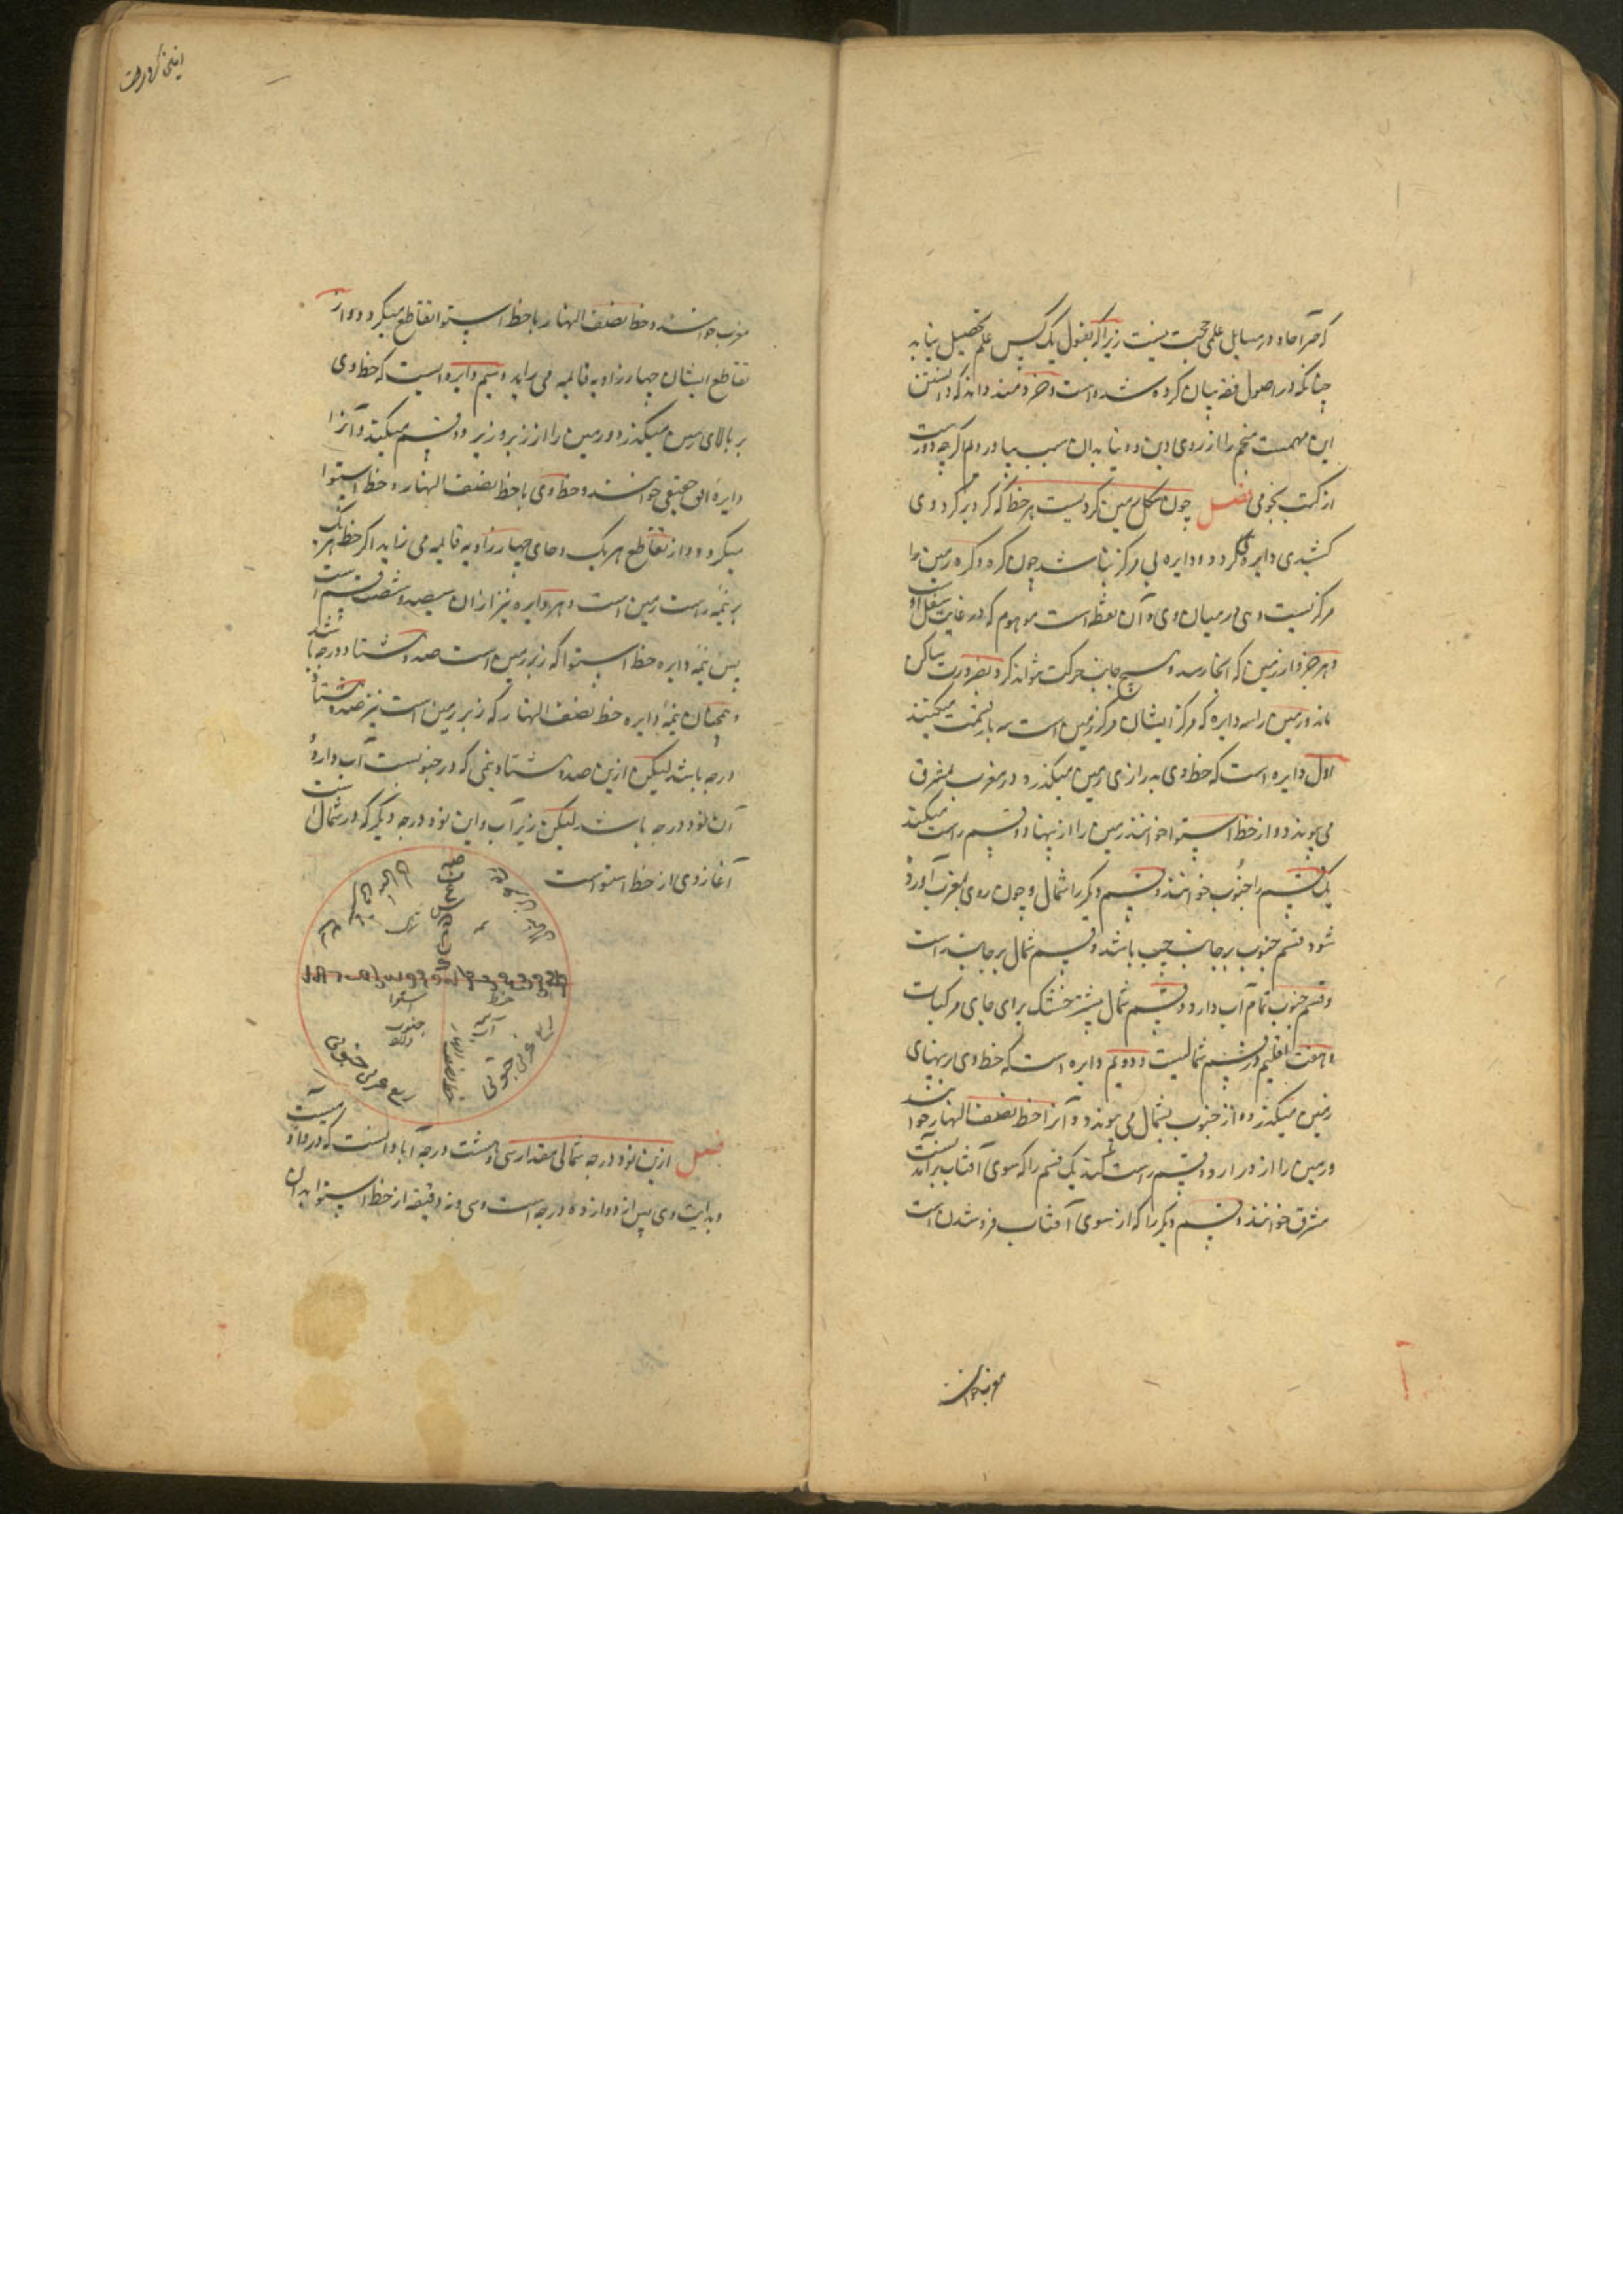 که خبر آحاد در مسایل علمی حجت نیست زیرا که بقول یک کس علم تحصیل نیابد
چنانکه در اصول فقه بیان کرده شده است و خردمند داند که دانستن
این مهمست منجم را از روی دین و دنیا بدان سبب بیاوردم اگرچه دورست
از کتب نجومی فصل چون شکل زمین کردیست هر خط که کرد بر کرد وی
کشیدی دایره کردد و دایره بی مرکز نباشد چون کره و کره زمین را
مرکزیست و همی در میان وی و آن نقطه است موهوم که در غایت سفل است
و هر جزو از زمین که انجا رسد هیچ جانب حرکت نتواند کرد بضرورت ساکن
ماند و زمین را سه دایره که مرکز ایشان مرکز زمین است سه بار قسمت میکنند
اول دایره است که خط وی بدرازی زمین میکذرد و در مغرب بمشرق
می پیوندد و از خط استوا خوانند زمین را از پهنا دو قسم راست میکند
یک قسم را جنوب خوانند و قسم دیکر را شمال و چون روی بمغرب آورده
شود قسم جنوب بر جانب چپ باشد و قسم شمال بر جانب راست
و قسم جنوب تمام آب دارد و قسم شمال بیشتر خشک برای جای مرکبات
و هفت اقلیم در قسم شمالیست و دویم دایره است که خط وی بر پهنای
زمین میکذرد و از جنوب بشمال می پیوندد و آنرا خط نصف النهار خوانند
و زمین را از درازا دو قسم راست کند یک قسم را که سوی آفتاب برآمدنست
مشرق خوانند و قسم دیکر را که از سوی آفتاب فروشدن است
مغرب خوانند
مغرب خوانند و خط نصف النهار با خط استوا تقاطع میکردد و از
تقاطع ایشان چهار زاویه قائمه می براید و سیم دایره ایست که خط وی
بر بالای زمین میکذرد و زمین را از زیر و زبر دو قسم میکند و آنرا
دایرۀ افق حقیقی خوانند و خط وی با خط نصف النهار و خط استوا
میکردد و از تقاطع هر یک دجای چهار زاویه قائمه می زاید اکر خط هر یک
بر نیمۀ راست زمین است و هر دایره نیز از ان سیصد و شصت قسم است
پس نیمۀ دایره خط استوا که زبر زمین است صد و هشتاد درجه باشد
و همچنان نیمۀ دایره خط نصف النهار که زبر زمین است نیز صد و هشتاد
درجه باشد لیکن ازین صد و هشتاد نیمی که در جنوبست آب دارد و
آن نود درجه باشد لیکن زیر آب و این نود درجه دیکر که در شمالست
آغاز وی از خط استواست
خط
استوا
جنوب
ربع غربی جنوبی
خط نصف النهار
فصل ازین نود درجه شمالی مقدار سی و هشت درجه آبادانست که در وی
و بدایت وی پس از دوازده درجه است و سی و نه دقیقه از خط استوا بدان